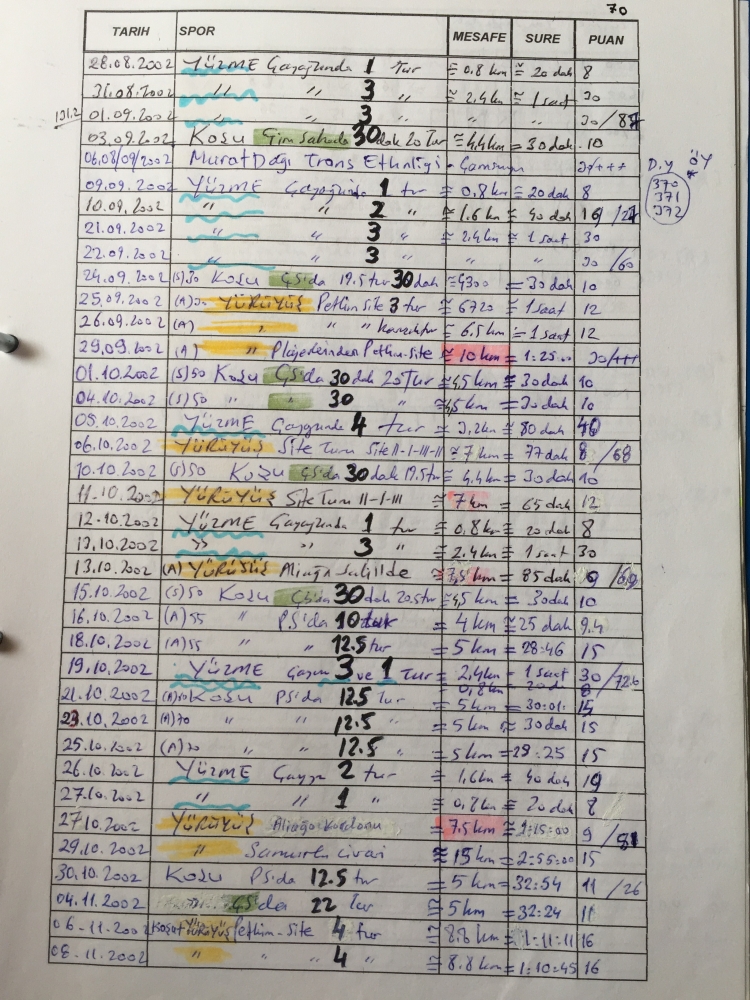 70
TARIH SPOR MESAFE SURE PUAN
28.08.2002 YÜZME 1 tur ≅ 0.8 km ≅ 20 dak 8
31.08.2002 " " 3 " ≅ 2.4 km ≅ 1 saat 30
01.09.2002 " " 3 " " " 30 /87
03.09.2002 KOSU Çim Sahada 30 dak 20 Tur ≅ 4.4 km = 30 dak 10
06,08/09/2002 Murat Dağı Trans Etkinliği - +++
D.y ÖY
370
371
372
09.09.2002 YÜZME 1 tur ≅ 0.8 km ≅ 20 dak 8
10.09.2002 " " 2 " ≅ 1.6 km ≅ 40 dak
21.09.2002 " " 3 " ≅ 2.4 km ≅ 1 saat 30
22.09.2002 " " 3 " " 30 /60
24.09.2002 (S) 30 KOSU ÇS'da 19.5 tur 30 dak ≅ 4300 = 30 dak 10
25.09.2002 (A) YÜRÜYÜŞ Petkim Site 3 tur ≅ 6720 = 1 saat 12
26.09.2002 (A) " " " ≅ 6.5 km = 1 saat 12
29.09.2002 (A) " Petkim-Site ≅ 10 km = 1:25.00 30/+++
01.10.2002 (S) 50 KOSU ÇS'da 30 dak 20 Tur ≅ 4,5 km = 30 dak 10
04.10.2002 (S) 50 " " 30 " ≅ 4,5 km = 30 dak 10
05.10.2002 YÜZME 4 tur ≅ 3,2 km ≅ 80 dak 40
06.10.2002 YÜRÜYÜŞ Site Turu Site II-I-III-II ≅ 7 km = 77 dak 8 /68
10.10.2002 (S) 50 KOSU ÇS'da 30 dak 19.5 tur ≅ 4.4 km = 30 dak 10
11.10.2002 YÜRÜYÜŞ Site Turu II-I-III ≅ 7 km = 65 dak 12
12.10.2002 YÜZME 1 tur ≅ 0,8 km ≅ 20 dak 8
13.10.2002 " " 3 " ≅ 2.4 km = 1 saat 30
13.10.2002 (A) YÜRÜYÜŞ Aliağa Sahilde ≅ 7,5 km = 85 dak 9 /69
15.10.2002 (S) 50 KOSU ÇS'da 30 dak 20.5 tur ≅ 4,5 km = 30 dak 10
16.10.2002 (A) 55 " PS'da 10 ≅ 4 km ≅ 25 dak 9.4
18.10.2002 (A) 55 " " 12.5 tur = 5 km = 28:46 15
19.10.2002 YÜZME 3 ve 1 Tur ≅ 2,4 km = 1 saat 30 /72.6
0,8 km = 20 dak 8
21.10.2002 (A) KOSU PS'da 12.5 Tur = 5 km = 30:01 15
23.10.2002 (A) 70 " " 12.5 " = 5 km ≅ 30 dak 15
25.10.2002 (A) 70 " " 12.5 " = 5 km = 29:25 15
26.10.2002 YÜZME 2 tur = 1,6 km ≅ 40 dak 19
27.10.2002 " " 1 " = 0,8 km = 20 dak 8
27.10.2002 YÜRÜYÜŞ Aliağa Kordonu = 7.5 km ≅ 1:15:00 9 /81
29.10.2002 " Samurlu civarı ≅ 15 km = 2:55:00 15
30.10.2002 KOSU PS'da 12.5 tur = 5 km = 32:54 11 /26
04.11.2002 ÇS'da 22 Tur ≅ 5 km = 32:24 11
06.11.2002 YÜRÜYÜŞ Petkim-Site 4 tur ≅ 8.8 km = 1:11:11 16
08.11.2002 " " 4 " ≅ 8.8 km = 1:10:45 16